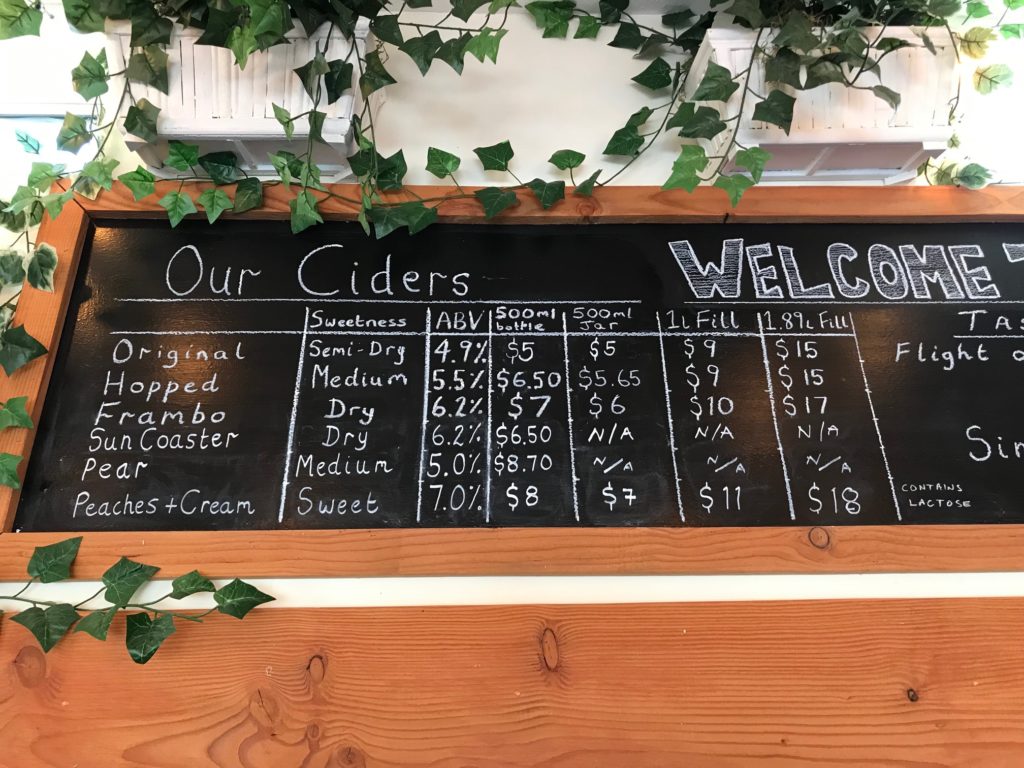 Our Ciders
WELCOME
Sweetness ABV 500ml bottle 500ml Jar 1L Fill 1.89L Fill
Original Semi-Dry 4.9% $5 $5 $9 $15
Hopped Medium 5.5% $6.50 $5.65 $9 $15
Frambo Dry 6.2% $7 $6 $10 $17
Sun Coaster Dry 6.2% $6.50 N/A N/A N/A
Pear Medium 5.0% $8.70 N/A N/A N/A
Peaches + Cream Sweet 7.0% $8 $7 $11 $18
CONTAINS
LACTOSE
Flight